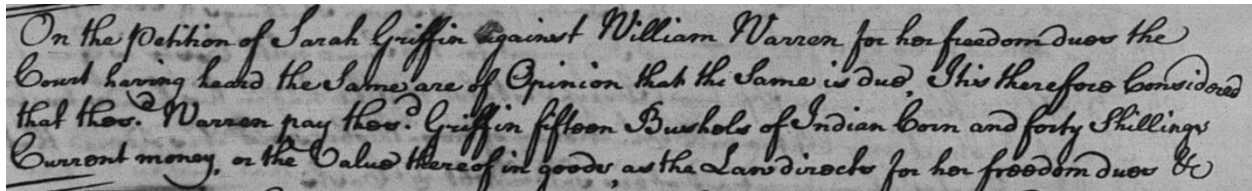 On the Petition of Sarah Griffin against William Warren for her freedom dues the
Court having heard the Same are of Opinion that the Same is due, It is therefore Considered
that the s.d Warren pay the s.d Griffin fifteen Bushels of Indian Corn and forty Shillings
Current money, or the Value thereof in goods, as the Law directs for her freedom dues &c